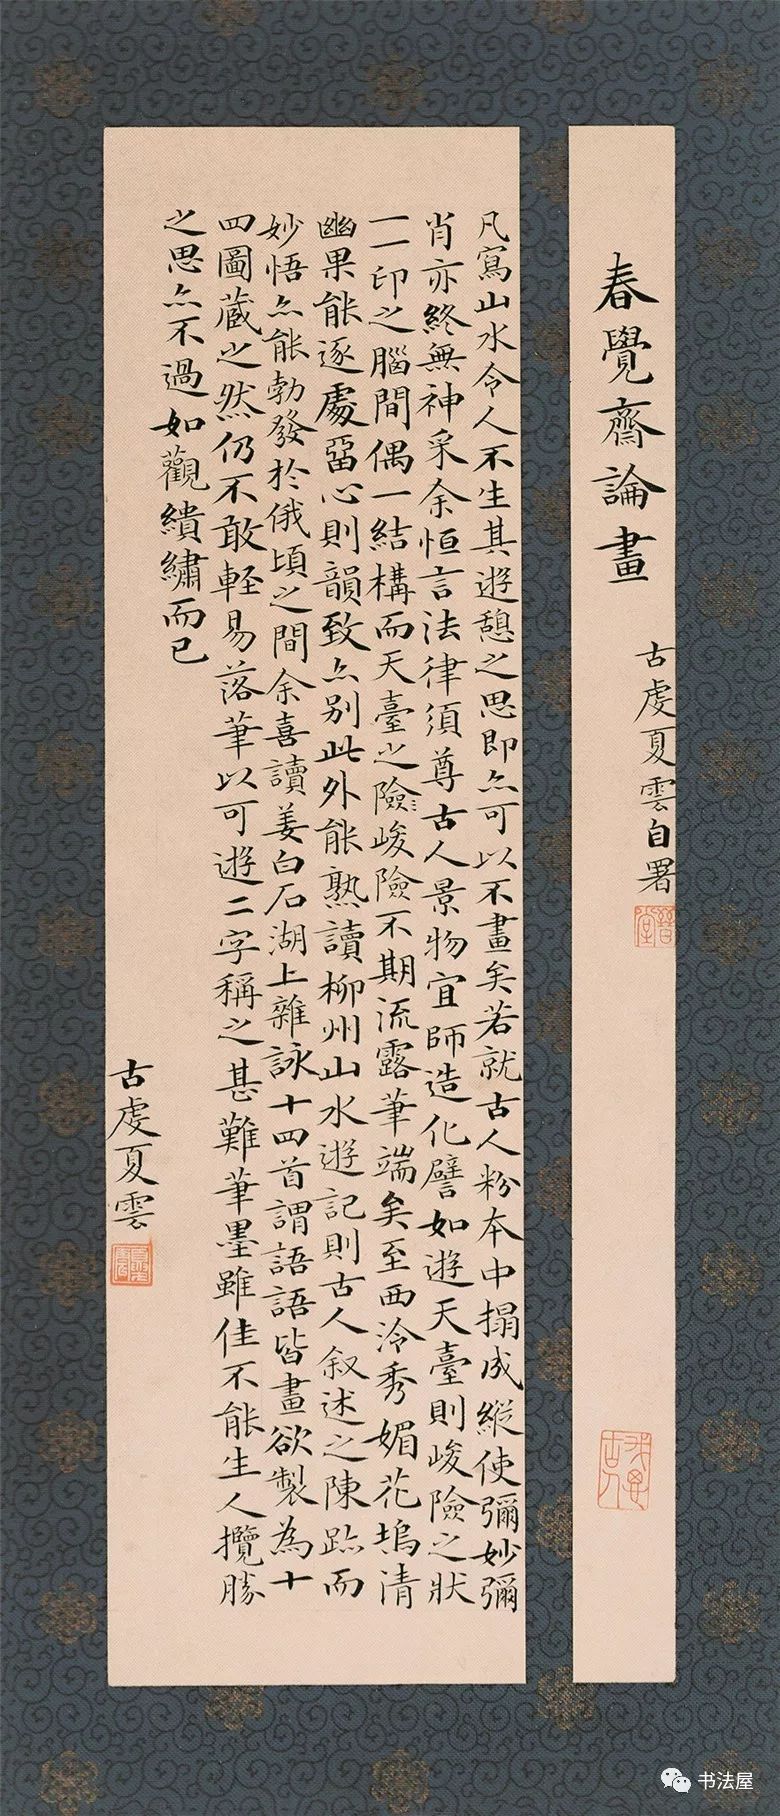 春覺齋論畫
古虔夏雲自署
凡寫山水令人不生其遊憩之思即亦可以不畫矣若就古人粉本中搨成縱使彌妙彌
肖亦終無神采余恒言法律須尊古人景物宜師造化譬如遊天臺則峻險之狀
一一印之腦間偶一結構而天臺之險峻險不期流露筆端矣至西泠秀媚花塢清
幽果能逐處留心則韻致亦别此外能熟讀柳州山水遊記則古人叙述之陳跡而
妙悟亦能勃發於俄頃之間余喜讀姜白石湖上雜詠十四首謂語語皆畫欲製為十
四圖藏之然仍不敢輕易落筆以可遊二字稱之甚難筆墨雖佳不能生人攬勝
之思亦不過如觀繢繡而已
古虔夏雲
书法屋